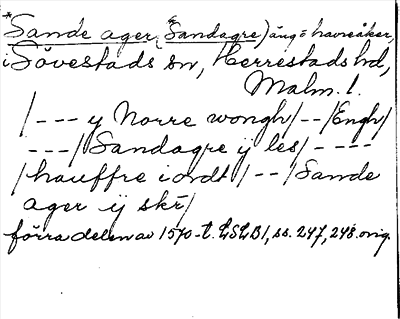 *Sande ager, (*Sandagre) äng o havreåker,
i Sövestads sn, Herrestads hd,
Malm. l.
/--- y Norre wongh/--/Engh/
---/Sandagre ij les/----
/hauffre iordt/--/Sande
ager ij skr/
förra delen av 1570-t. LSLB1, ss. 247, 248. orig.